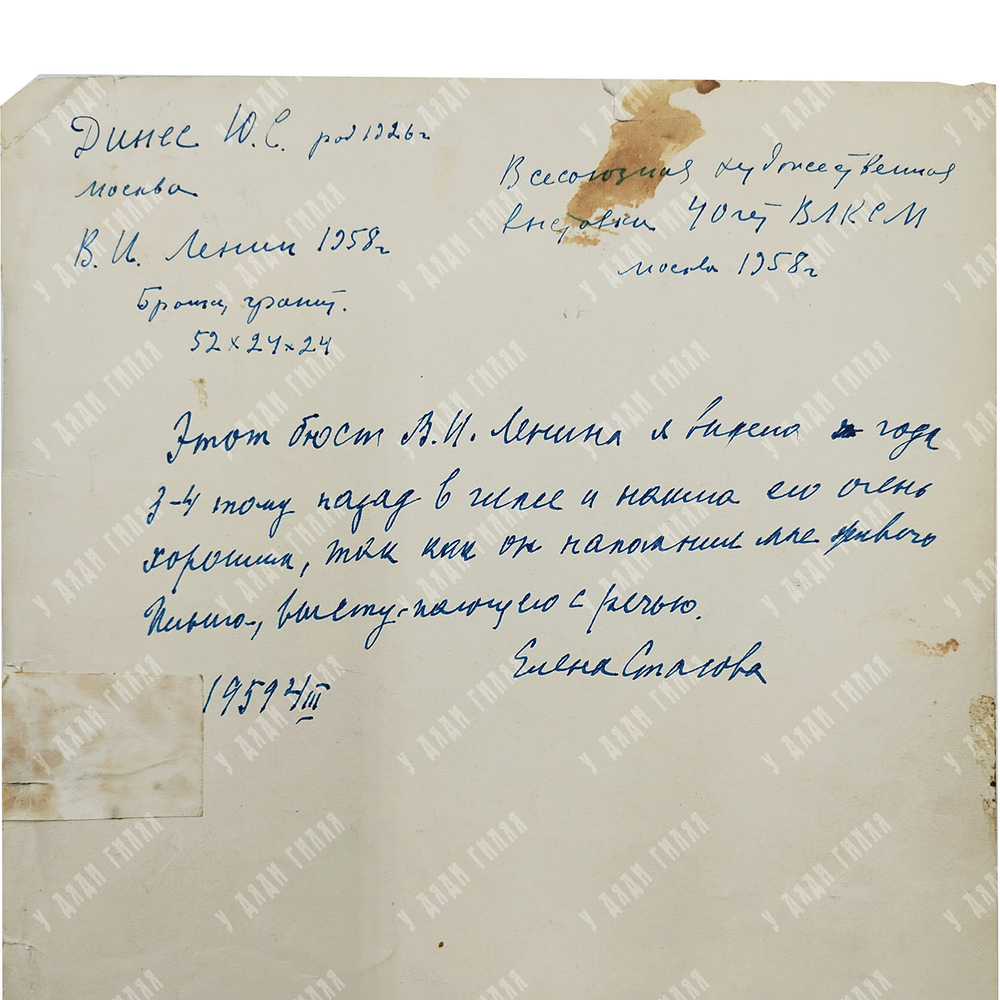 Динес Ю.С. род 1926 г
Москва
В.И. Ленин 1958 г
Бронза, гранит.
52 x 24 x 24
Всесоюзная художественная
выставка 40 лет ВЛКСМ
Москва 1958 г
Этот бюст В.И. Ленина я видела года
3-4 тому назад в гипсе и нашла его очень
хорошим, так как он напомнил мне живого
Ильича, выступающего с речью.
Елена Стасова
1959 4/III
У ДЯДИ ГИЛЯЯ